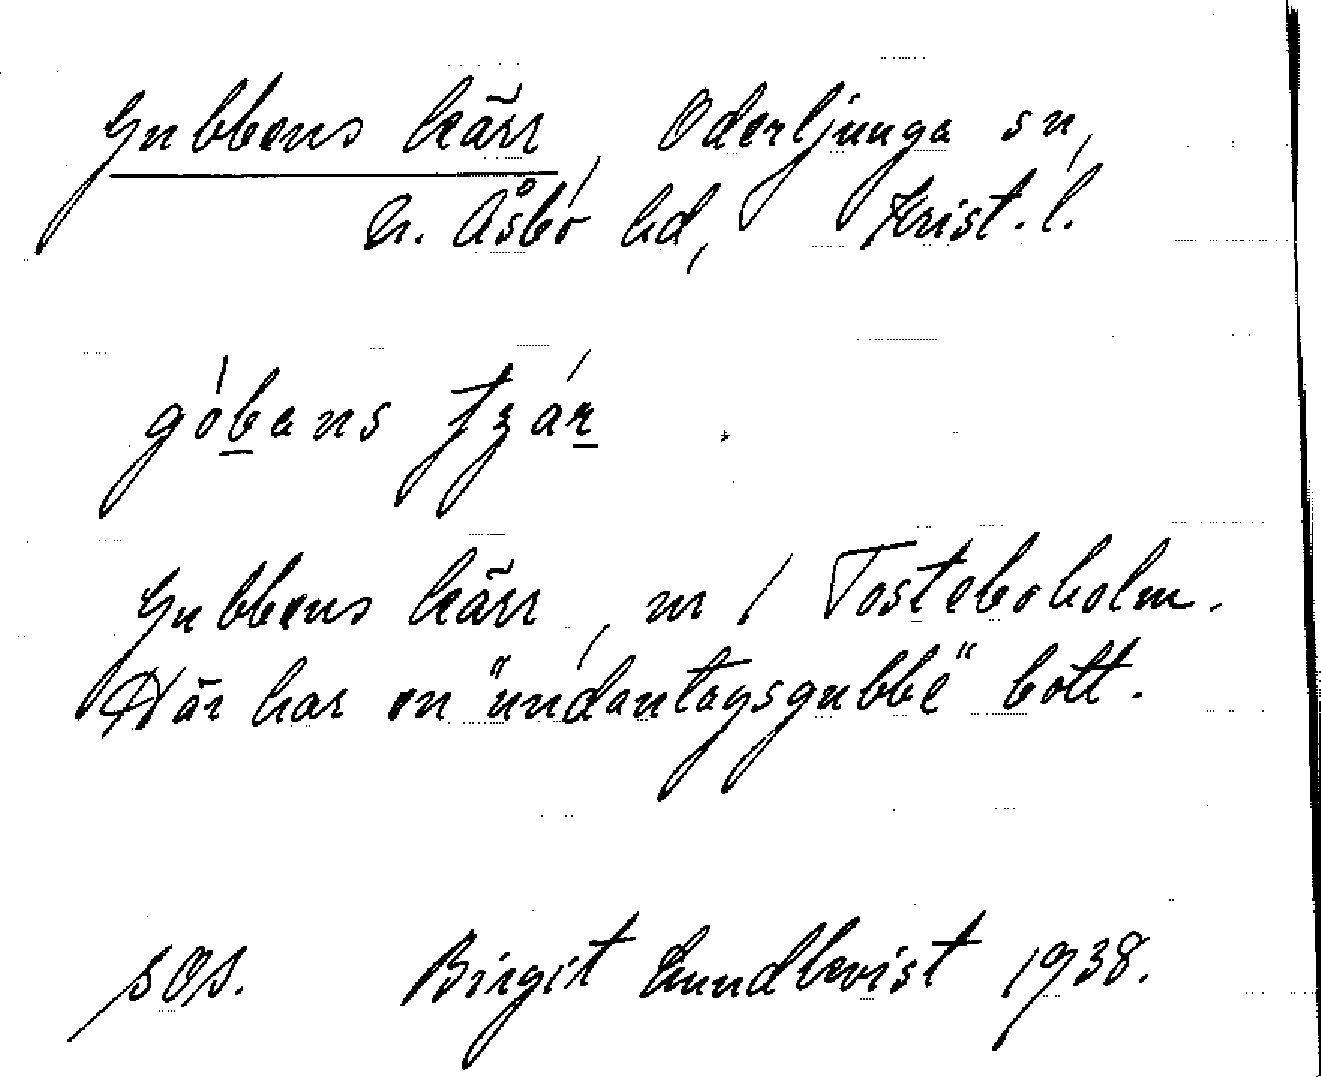 Gubbens kärr, Oderljunga sn,
N. Åsbo hd, Krist. l.
góbans tʒár
Gubbens kärr, m / Tosteboholm.
Här har en "undantagsgubbe" bott.
SOS. Birgit Lundkvist 1938.